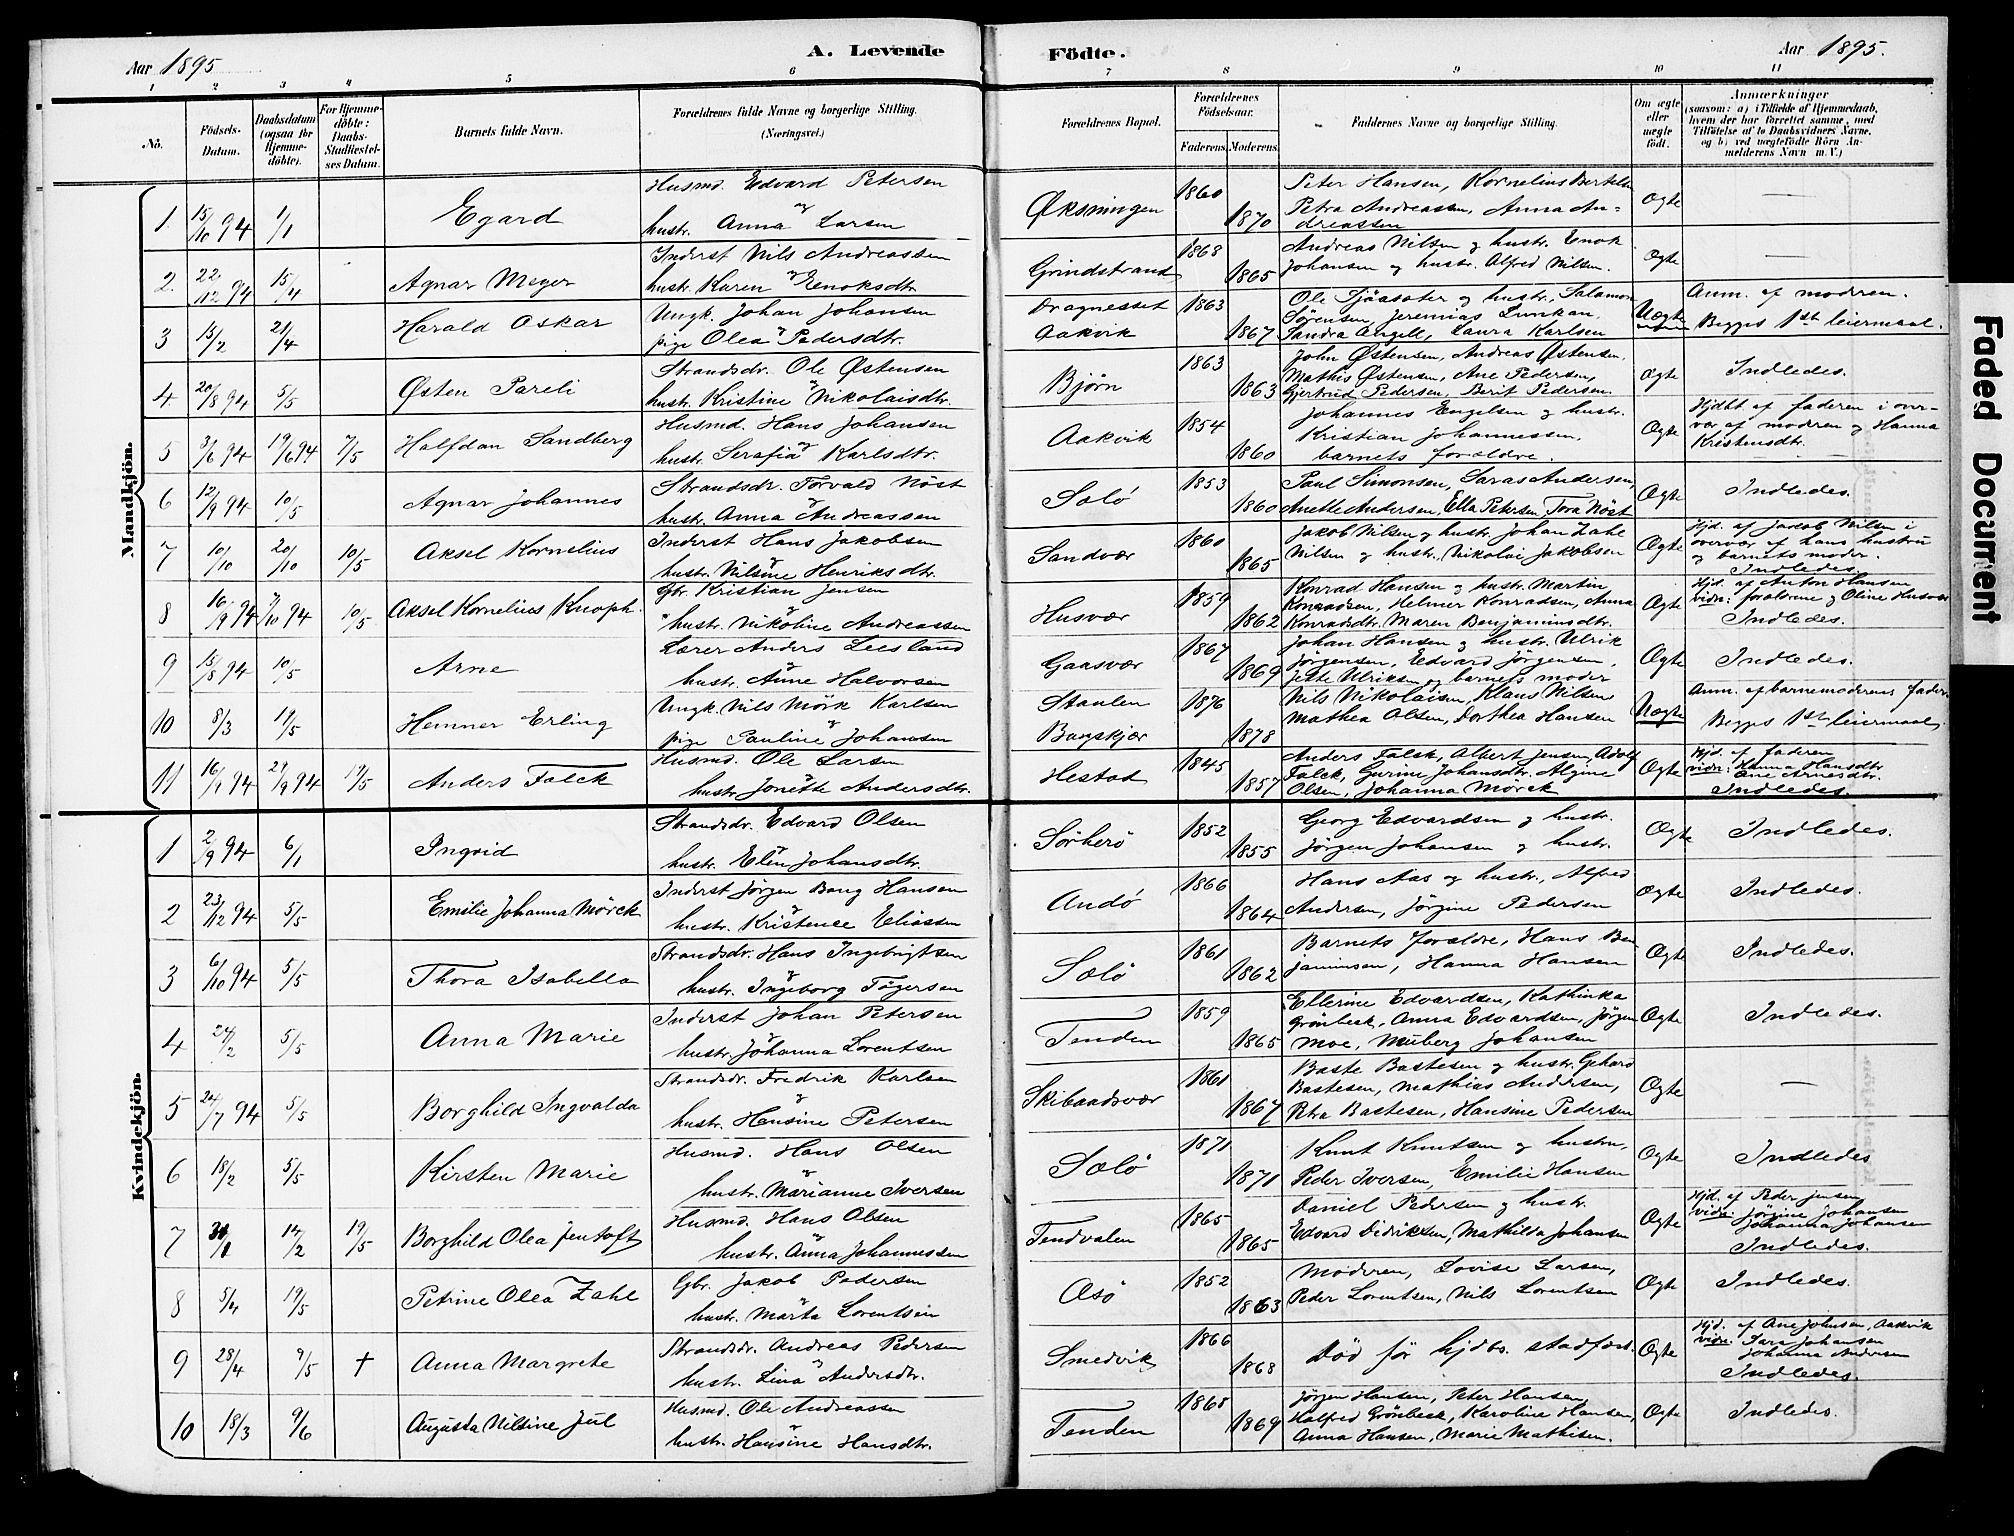 Aar 1895
A. Levende
Födte.
Aar 1895.
1 2 3 4 5 6 7 8 9 10 11
No.
Födsels-Datum.
Daabsdatum (ogsaa for Hjemme-döbte).
For Hjemme-döbte: Daabs-Stadfæstel-ses Datum.
Barnets fulde Navn.
Forældrenes fulde Navne og borgerlige Stilling. (Næringsvei.)
Forældrenes Bopæl.
Forældrenes Födselsaar.
Faderens. Moderens.
Faddernes Navne og borgerlige Stilling.
Om ægte eller uægte födt.
Anmærkninger (saasom: a) i Tilfælde af Hjemmedaab, hvem der har forrettet samme, med Tilföielse af to Daabsvidners Navne, og b) ved uægtefödte Börn An-melderens Navn m. V.)
Mandkjön.
1. 15/10 94 1/1 Egard Husmd. Edvard Petersen og hustr. Anna Larsen Øksningen 1860 1870 Peter Hansen, Kornelius Bertelsen Petra Andreassen, Anna An-dreassen Ægte —
2. 22/12 94 15/4 Agnar Meyer Inderst Nils Andreassen og hustr. Karen Enoksdtr. Grindstrand 1868 1865 Andreas Nilsen og hustr. Enok Johansen og hustr. Alfred Nilsen. Ægte —
3 13/2 21/4 Harald Oskar Ungk. Johan Johansen og pige Olea Pedersdtr. Dragnestet Aakvik 1863 1867 Ole Sjåsæter og hustr., Salamon Sörensen, Jeremias Lunkan, Sandra Angell, Laura Karlsen Uægte Anm. af moderen. Begges 1st leiermaal.
4. 20/8 94 5/5 Østen Pareli Strandsdr. Ole Østensen og hustr. Kristine Nikolaisdtr. Bjørn 1863 1863 John Østensen, Andreas Østensen, Mathis Østensen, Ane Pedersen, Gjertrud Pedersen, Berit Pedersen. Ægte Indledes.
5 3/6 94 19/6 94 7/5 Halfdan Sandberg Husmd. Hans Johansen og hustr. Serafia Karlsdtr. Aakvik 1854 1860 Johannes Engelsen og hustr. Kristian Johannessen. barnets forældre. Ægte Hjdbt af faderen i over-vær af moderen og Hanna Kristensdtr.
6 12/9 94 10/5 Agnar Johannes Strandsdr. Torvald Nöst og hustr. Anna Andreassen Sælö 1853 1860 Paul Simonsen, Saras Andersen, Anette Andersen, Ella Petersen, Tora Nöst Ægte Indledes.
7 10/10 20/10 10/5 Aksel Kornelius Inderst Hans Jakobsen og hustr. Nilsine Henriksdtr. Sandvær 1860 1865 Jakob Nilsen og hustr, Johan Zahl Nilsen og hustr., Nikolai Jakobsen Ægte Hjd. af Jacob Nilsen i overvær af hans hustru og barnets moder. Indledes.
8 16/9 94 7/10 94 10/5 Aksel Kornelius Knoph. Gbr. Kristian Jensen og hustr. Nikoline Andreassen Husvær 1859 1862 Konrad Hansen og hustr. Martin Konradsen, Helmer Konradsen, Anna Konradsdtr. Maren Benjaminsdtr. Ægte Hjd. af Anton Hansen vidn: forældrene og Oline Husvær Indledes.
9 15/8 94 10/5 Arne Lærer Anders Leesland og hustr. Anne Halvorsen Gaasvær 1867 1869 Johan Hansen og hustr. Ulrik Jörgensen, Edvard Jörgensen, Jette Ulriksen og barnets moder Ægte Indledes.
10 8/3 19/5 Hemner Erling Ungk. Nils Mörk Karlsen og pige Pauline Johansen Staulen Bangskjær 1876 1878 Nils Nikolaisen, Klaus Nilsen Mathea Olsen, Dorthea Hansen Uægte Anm. af barnemoderens fader. Begges 1st leiermaal,
11 16/9 94 29/9 94 19/5 Anders Falck Husmd. Ole Larsen og hustr. Jonette Andersdtr. Hestad 1845 1857 Anders Falck, Albert Jensen, Adolf Falck, Gurine Johansdtr. Algine Olsen, Johanna Mörck Ægte Hjd. af faderen vidn: Hanna Hansdtr Ane Arnesdtr. Indledes.
Kvindekjön.
1 2/9 94 6/1 Ingrid Strandsdr. Edvard Olsen og hustr. Elen Johansdtr. Sörherö 1852 1855 Georg Edvardsen og hustr. Jörgen Johansen og hustr. Ægte Indledes.
2 23/12 94 5/5 Emilie Johanna Mörck Inderst Jörgen Bang Hansen og hustr. Kristence Eliassen Andö 1866 1864 Hans Aas og hustr., Alfred Andersen, Jörgine Pedersen Ægte Indledes.
3 6/10 94 5/5 Thora Isabella Strandsdr. Hans Ingebrigtsen og hustr. Ingeborg Tögersen Sælö 1861 1862 Barnets forældre, Hans Ben-jaminsen, Hanna Hansen Ægte Indledes.
4 24/2 5/5 Anna Marie Inderst Johan Petersen og hustr. Johanna Lorentsen Tenden 1859 1865 Ellerine Edvardsen, Kathinka Grönbeck, Anna Edvardsen, Jörgen Moe, Muberg Johansen Ægte Indledes.
5 24/7 94 5/5 Borghild Ingvalda Strandsdr. Fredrik Karlsen og hustr. Hansine Petersen Skibaadsvær 1861 1867 Baste Bastesen og hustr. Gehard Bastesen, Mathias Andersen, Petra Bastesen, Hansine Pedersen Ægte —
6 18/2 5/5 Kirsten Marie Husmd. Hans Olsen og hustr. Marianne Iversen Sælö 1871 1871 Knut Knutsen og hustru, Peder Iversen, Emilie Hansen Ægte Indledes
7 31/1 14/2 19/5 Borghild Olea Jentoft Husmd. Hans Olsen og hustr. Anna Johannessen Tendvalen 1865 1865 Daniel Pedersen og hustr. Edvard Didriksen, Mathilda Johansen Ægte Hjd. af Peder Jensen vidn: Jörgine Johansen Johanna Johansen Indledes.
8 5/4 19/5 Petrine Olea Zahl Gbr. Jakob Pedersen og hustr. Marta Lorentsen Asö 1852 1863 Moderen, Lovise Larsen, Peder Lorentsen, Nils Lorentsen Ægte Indledes.
9 28/4 9/5 † Anna Margrete Strandsdr. Andreas Pedersen og hustr. Lina Andersdtr. Smedvik 1866 1868 Död för hjdbs. stadfæst. Ægte Hjd. af Ane Johnsen, Aakvik vidn: Sara Johansen Johanna Andersen Indledes.
10 18/3 9/6 Augusta Nilsine Jul Husmd. Ole Andreassen og hustr. Hansine Hansdtr. Tenden 1865 1869 Jörgen Hansen, Peter Hansen, Halfred Grönbeck, Karoline Hansen, Anna Hansen, Marie Mathisen. Ægte Indledes.
Faded Document